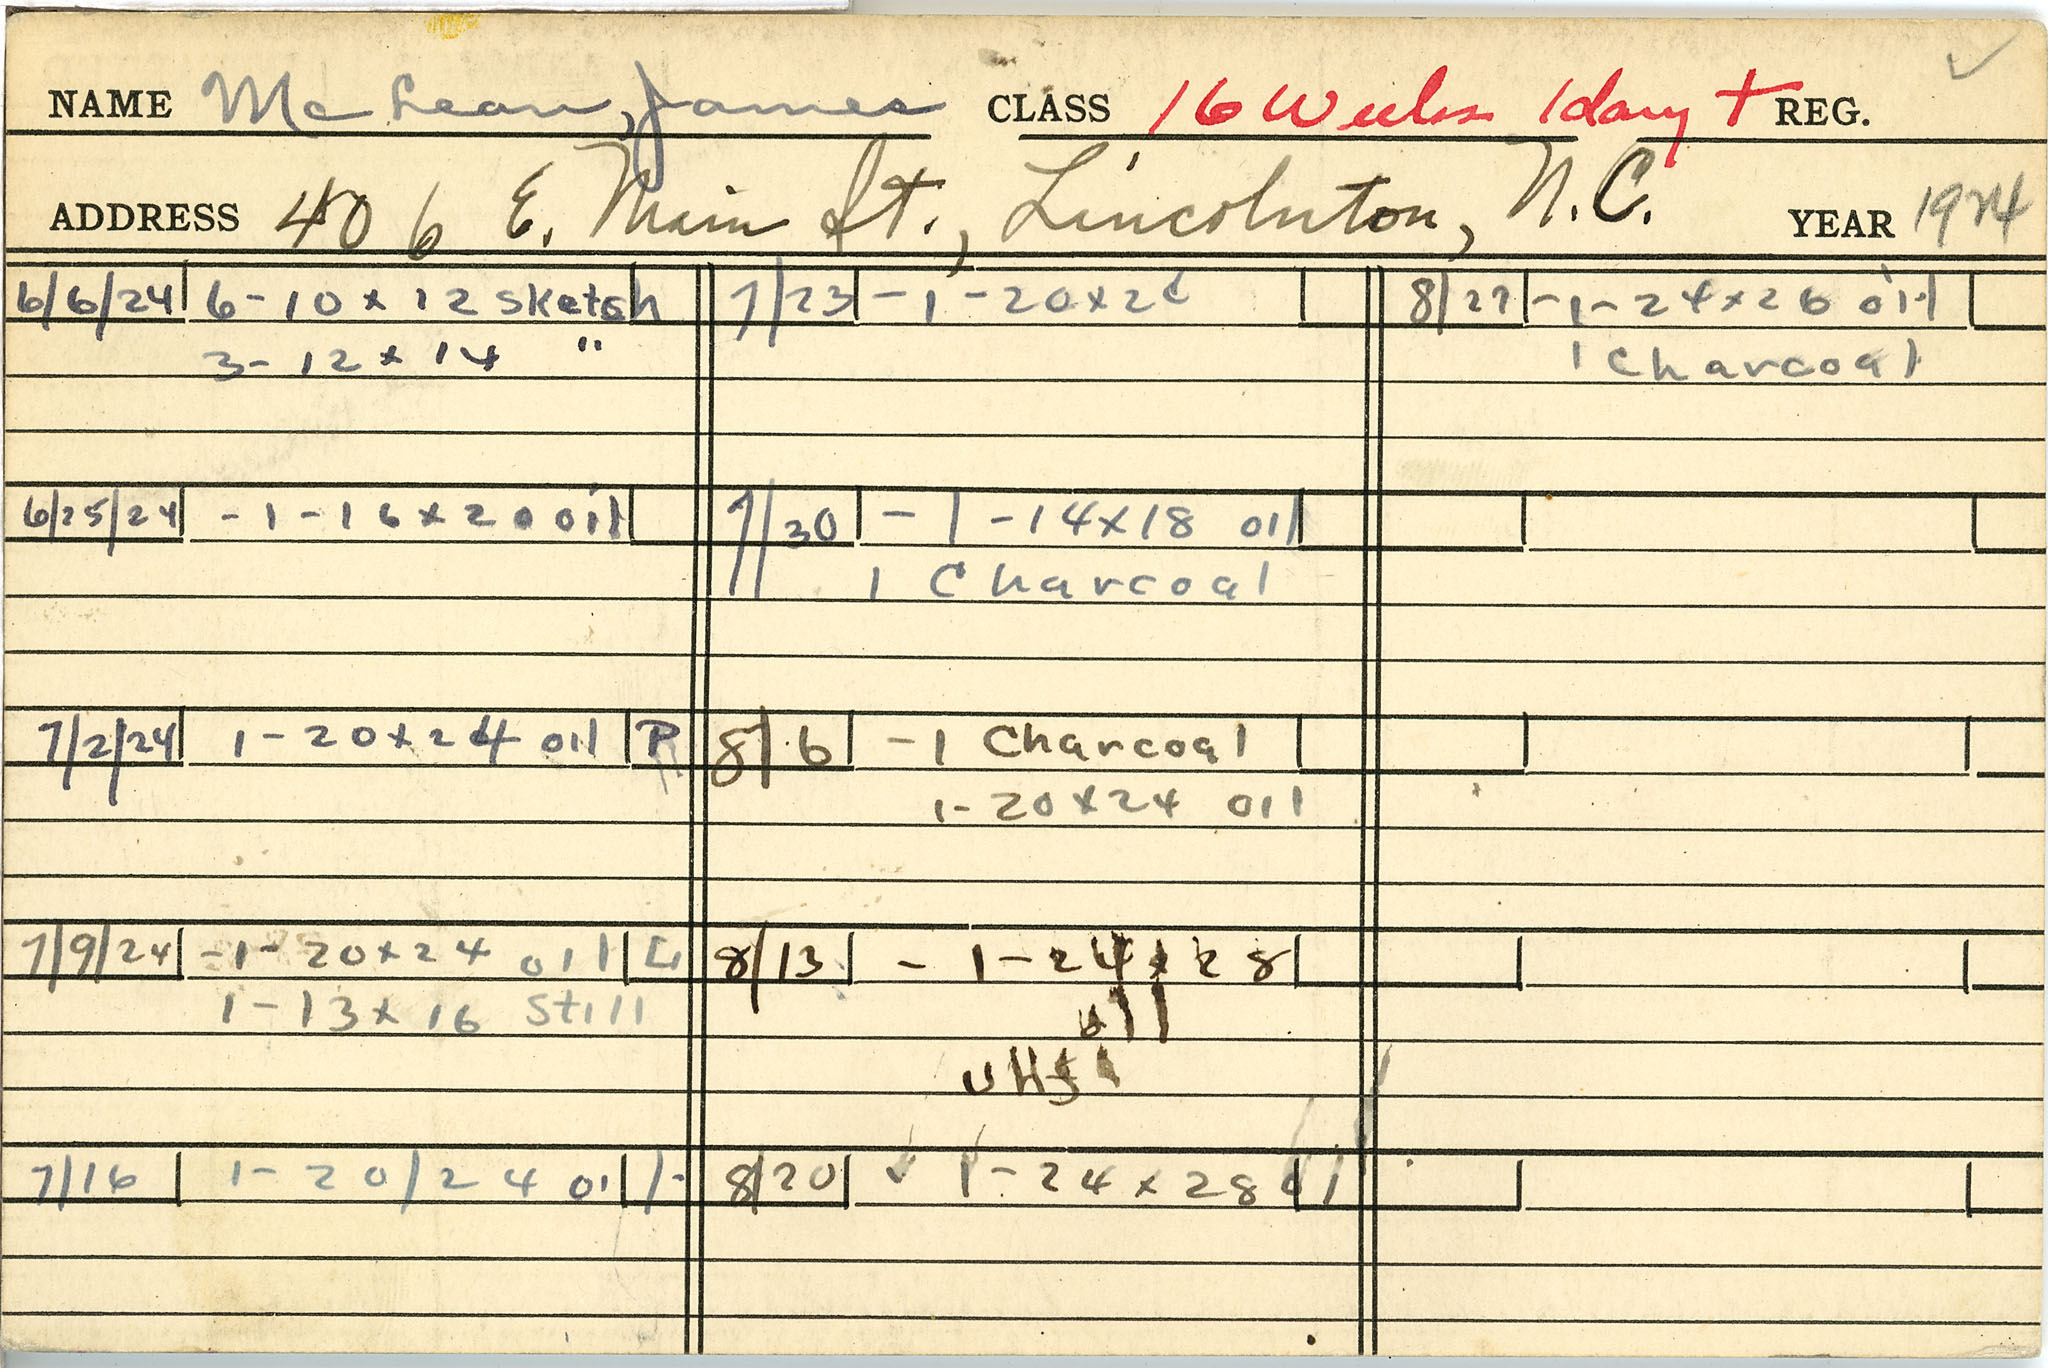 NAME McLean, James CLASS 16 Weeks 1 day + REG.
ADDRESS 406 E. Main St., Lincolnton, N.C. YEAR 1924
6/6/24 6-10x12 sketch
3-12x14 "
6/25/24 -1-16x20 oil
7/2/24 1-20x24 oil P
7/9/24 -1-20x24 oil
1-13x16 Still
7/16 1-20/24 oil
7/23 -1-20x2
7/30 -1-14x18 oil
1 Charcoal
8/6 -1 Charcoal
1-20x24 oil
8/13 -1-24x28
oil
8/20 1-24x28
8/27 -1-24x26 oil
1 Charcoal